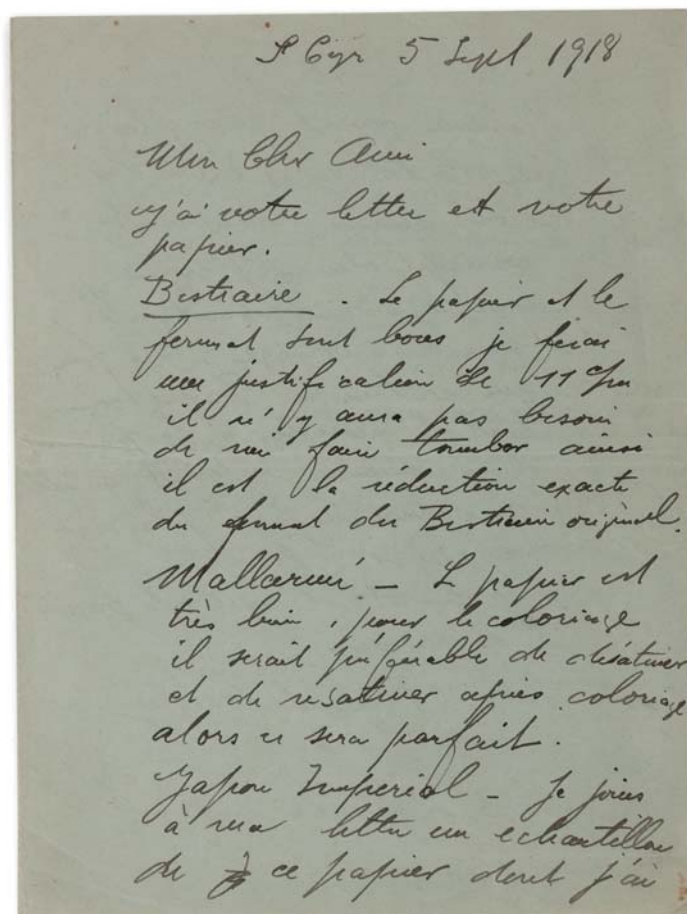 St Cyr 5 Sept 1918
Mon Cher Ami
J'ai votre lettre et votre
papier.
Bestiaire. Le papier et le
format sont bons je ferai
une justification de 11 c/m
il n'y aura pas besoin
de faire tomber ainsi
il est la réduction exacte
du format du Bestiaire original.
Mallarmé – L papier est
très bien, pour le coloriage
il serait préférable de désatiner
et de resatiner après coloriage
alors ce sera parfait.
Japon Imperial – Je joins
à ma lettre un echantillon
de ce papier dont j'ai